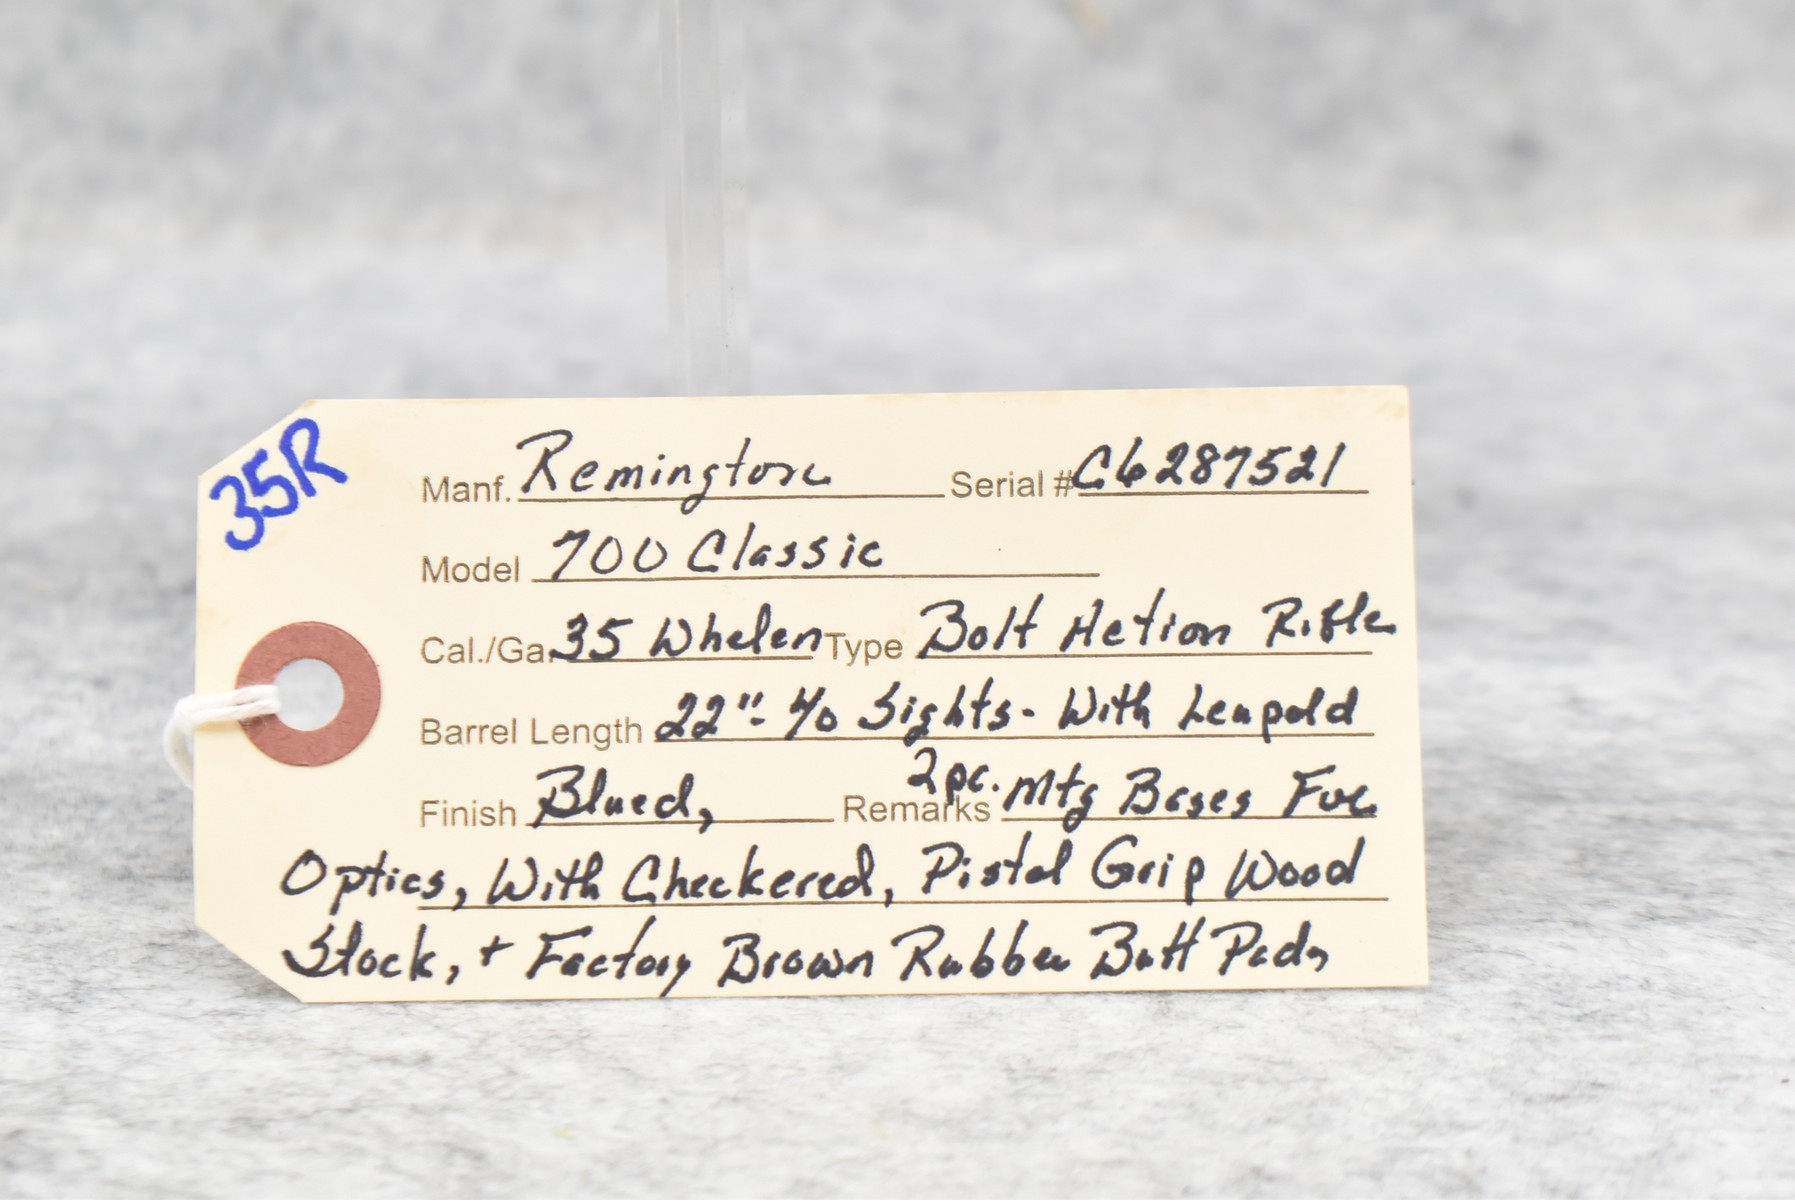 35R
Manf. Remington Serial # C6287521
Model 700 Classic
Cal./Ga. 35 Whelen Type Bolt Action Rifle
Barrel Length 22"- W/o Sights - With Leupold
Finish Blued, Remarks 2pc. Mtg Bases For
Optics, With Checkered, Pistol Grip Wood
Stock, + Factory Brown Rubber Butt Pad,